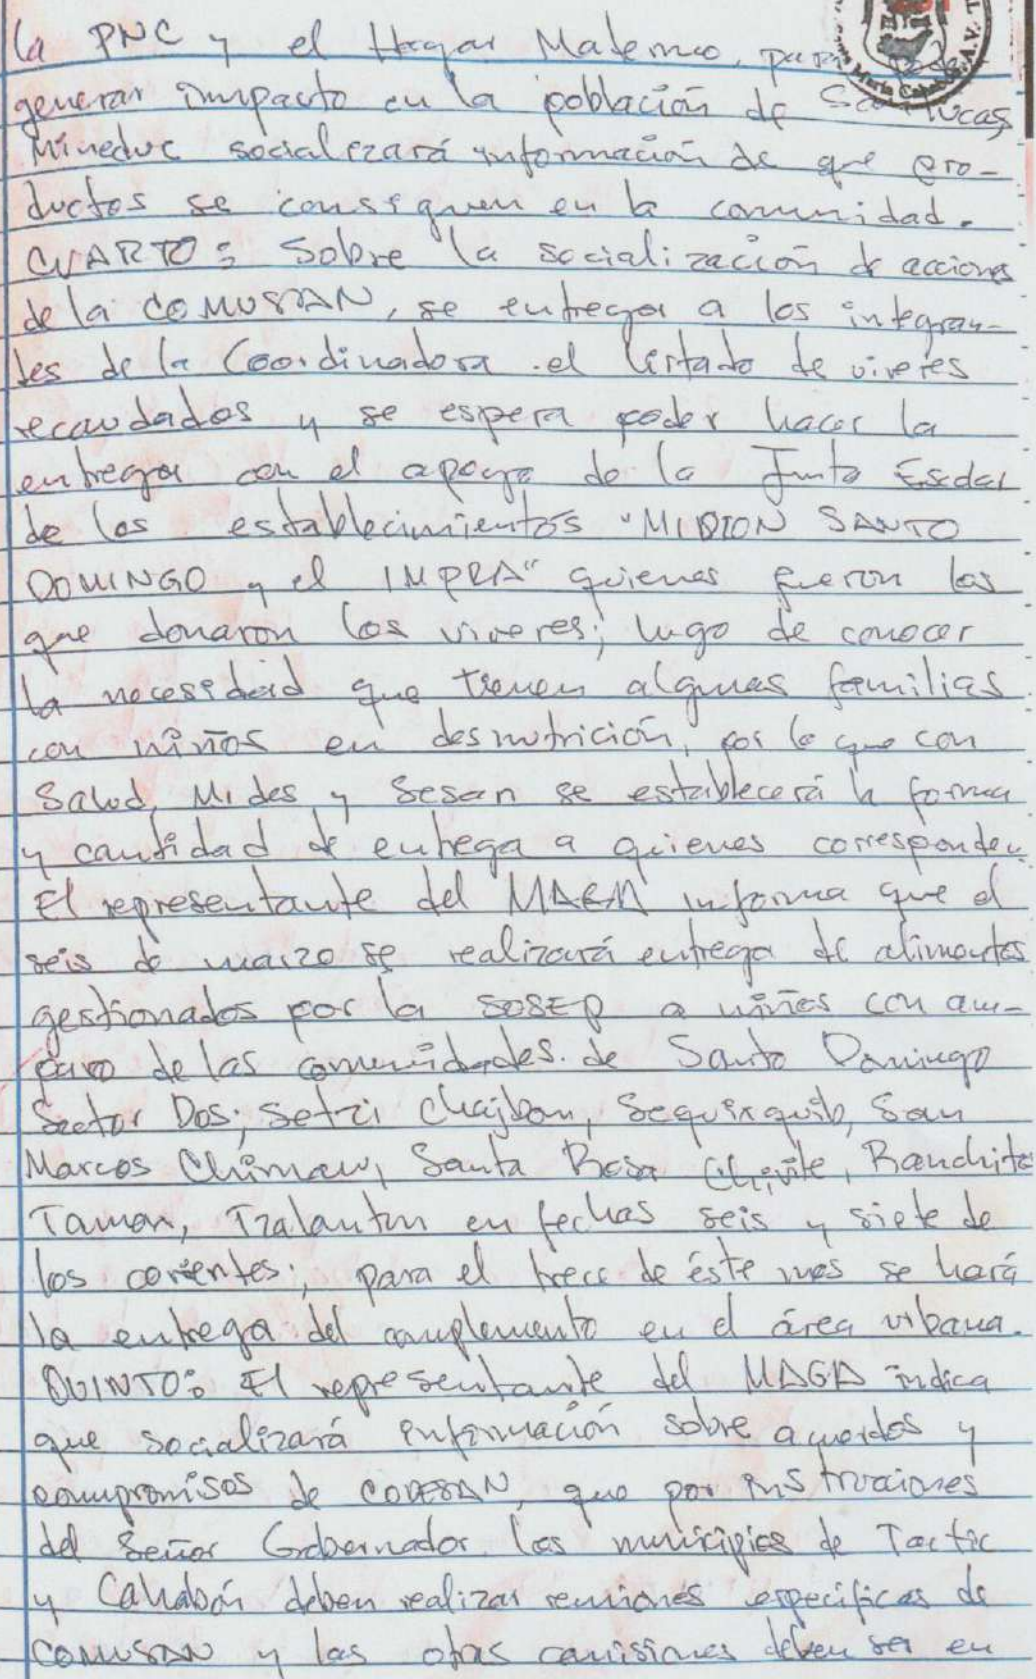 la PNC y el Hogar Materno, para poder
generar impacto en la población de San Lucas,
Mineduc socializará información de que pro-
ductos se consiguen en la comunidad.
CUARTO: Sobre la socialización de acciones
de la COMUSAN, se entrega a los integran-
tes de la Coordinadora el listado de viveres
recaudados y se espera poder hacer la
entrega con el apoyo de la Junta Escolar
de los establecimientos "MISION SANTO
DOMINGO y el IMPRA" quienes fueron los
que donaron los viveres; lugo de conocer
la necesidad que tienen algunas familias
con niños en desnutrición, por lo que con
Salud, Mides y Sesan se establecerá la forma
y cantidad de entrega a quienes corresponden.
El representante del MAGA informa que el
seis de marzo se realizará entrega de alimentos
gestionados por la SOSEP a niños con am-
paro de las comunidades de Santo Domingo
Sector Dos; Setzi Chajbon, Sequixquib, San
Marcos Chimaw, Santa Rosa Chivite, Ranchito
Tamax, Tzalantun en fechas seis y siete de
los corrientes; para el trece de éste mes se hará
la entrega del complemento en el área urbana.
QUINTO: El representante del MAGA indica
que socializará información sobre acuerdos y
compromisos de CODESAN, que por instrucciones
del Señor Gobernador los municipios de Tactic
y Cahabón deben realizar reuniones especificas de
COMUSAN y las otras comisiones deben ser en